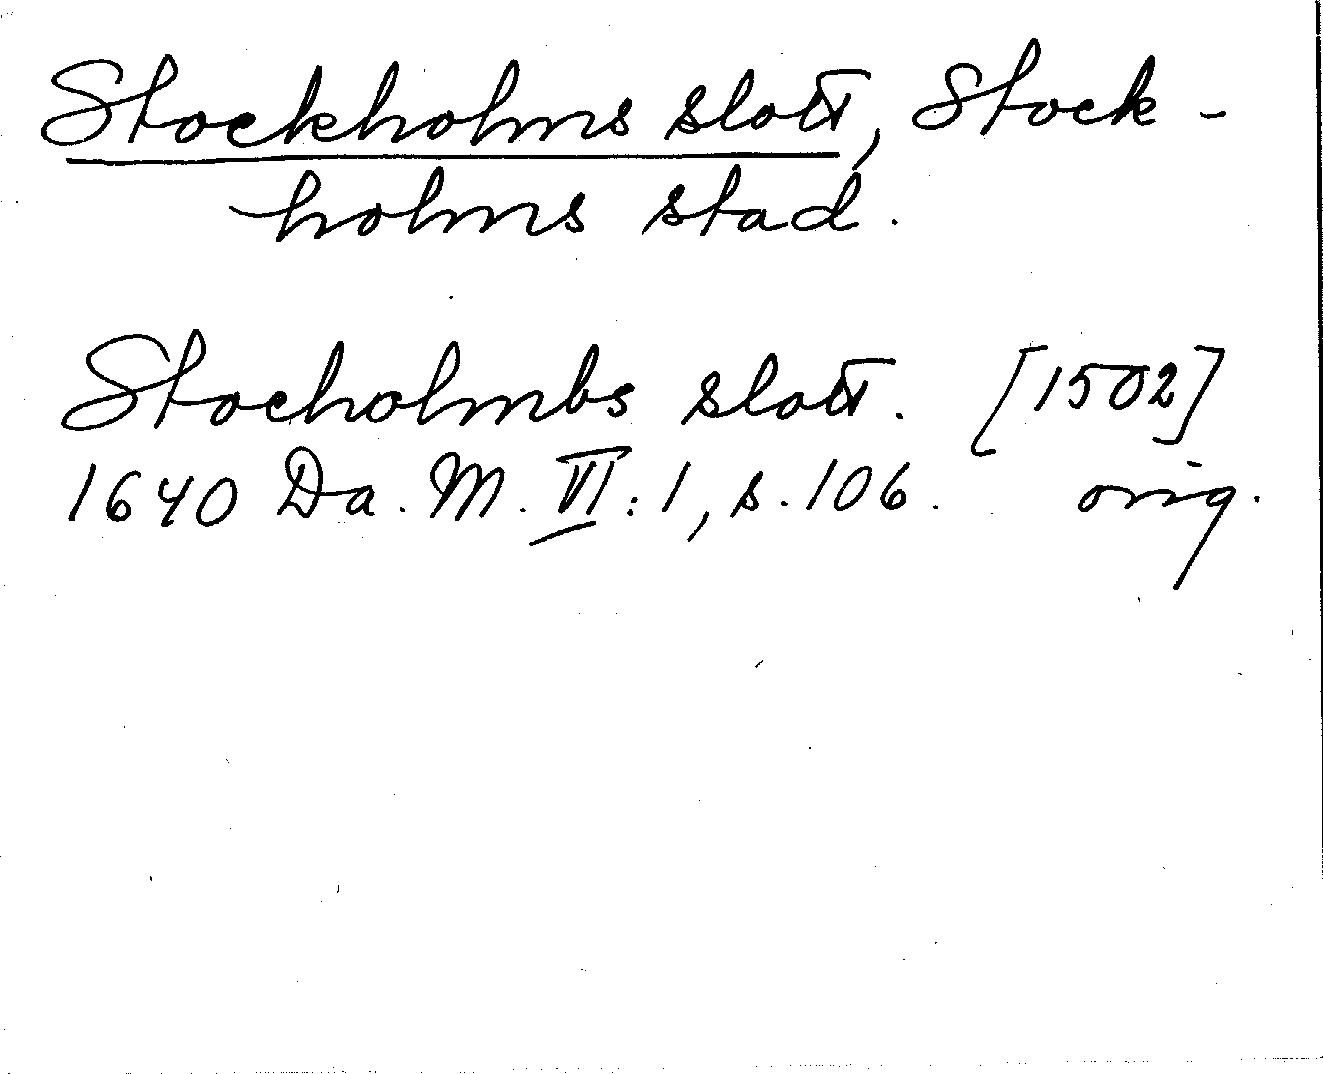 Stockholms slott, Stock-
holms stad.
Stocholmbs slott. [1502]
1640 Da. M. VI:1, s. 106. orig.